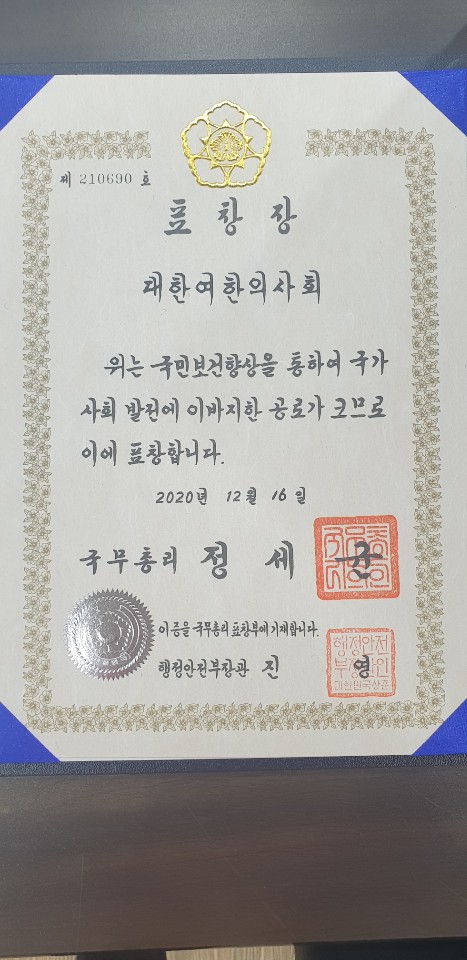 제 210690 호
표 창 장
대한여한의사회
위는 국민보건향상을 통하여 국가
사회 발전에 이바지한 공로가 크므로
이에 표창합니다.
2020년 12월 16일
국무총리 정 세 균
이 증을 국무총리 표창부에 기재합니다.
행정안전부장관 진 영
행정안전
부장관인